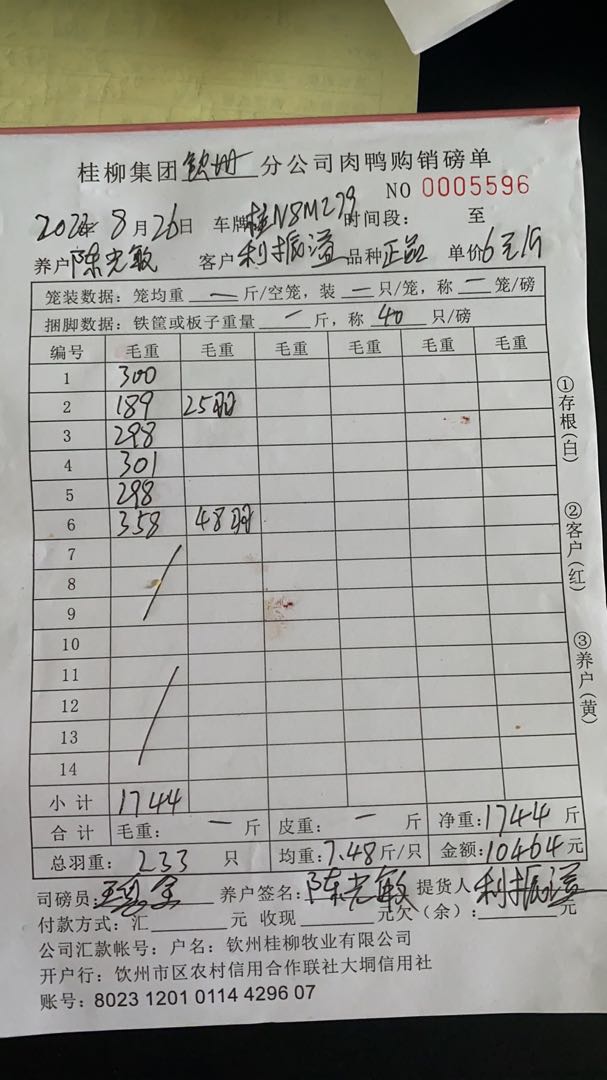 桂柳集团钦州分公司肉鸭购销磅单
NO 0005596
2022年8月26日 车牌桂N8M279 时间段： 至
养户陈光敏 客户利振溢 品种正品 单价6元/斤
笼装数据：笼均重 — 斤/空笼，装 — 只/笼，称 — 笼/磅
捆脚数据：铁筐或板子重量 — 斤，称 40 只/磅
编号 毛重 毛重 毛重 毛重 毛重 毛重
1 300
2 189 25羽
3 298
4 301
5 298
6 358 48羽
7
8
9
10
11
12
13
14
小计 1744
合计 毛重： — 斤 皮重： — 斤 净重：1744 斤
总羽重： 233 只 均重：7.48斤/只 金额：10464元
司磅员： 养户签名：陈光敏 提货人 利振溢
付款方式：汇 元 收现 元欠（余）： 元
公司汇款帐号：户名：钦州桂柳牧业有限公司
开户行：钦州市区农村信用合作联社大垌信用社
账号：8023 1201 0114 4296 07
①存根（白）
②客户（红）
③养户（黄）